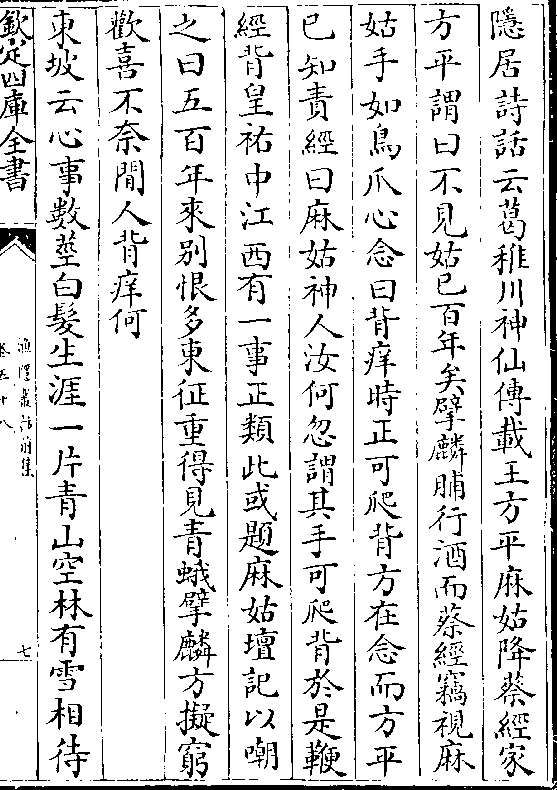 隱居詩話云葛稚川神仙傳載王方平麻姑降蔡經家
方平謂曰不見姑已百年矣擘麟脯行酒而蔡經竊視麻
姑手如鳥爪心念曰背痒時正可爬背方在念而方平
已知責經曰麻姑神人汝何忽謂其手可爬背於是鞭
經背皇祐中江西有一事正類此或題麻姑壇記以嘲
之曰五百年來别恨多東征重得見青蛾擘麟方擬窮
歡喜不奈閒人背痒何
東坡云心事數莖白髮生涯一片青山空林有雪相待
欽定四庫全書
漁隱叢話前集
卷五十八
七